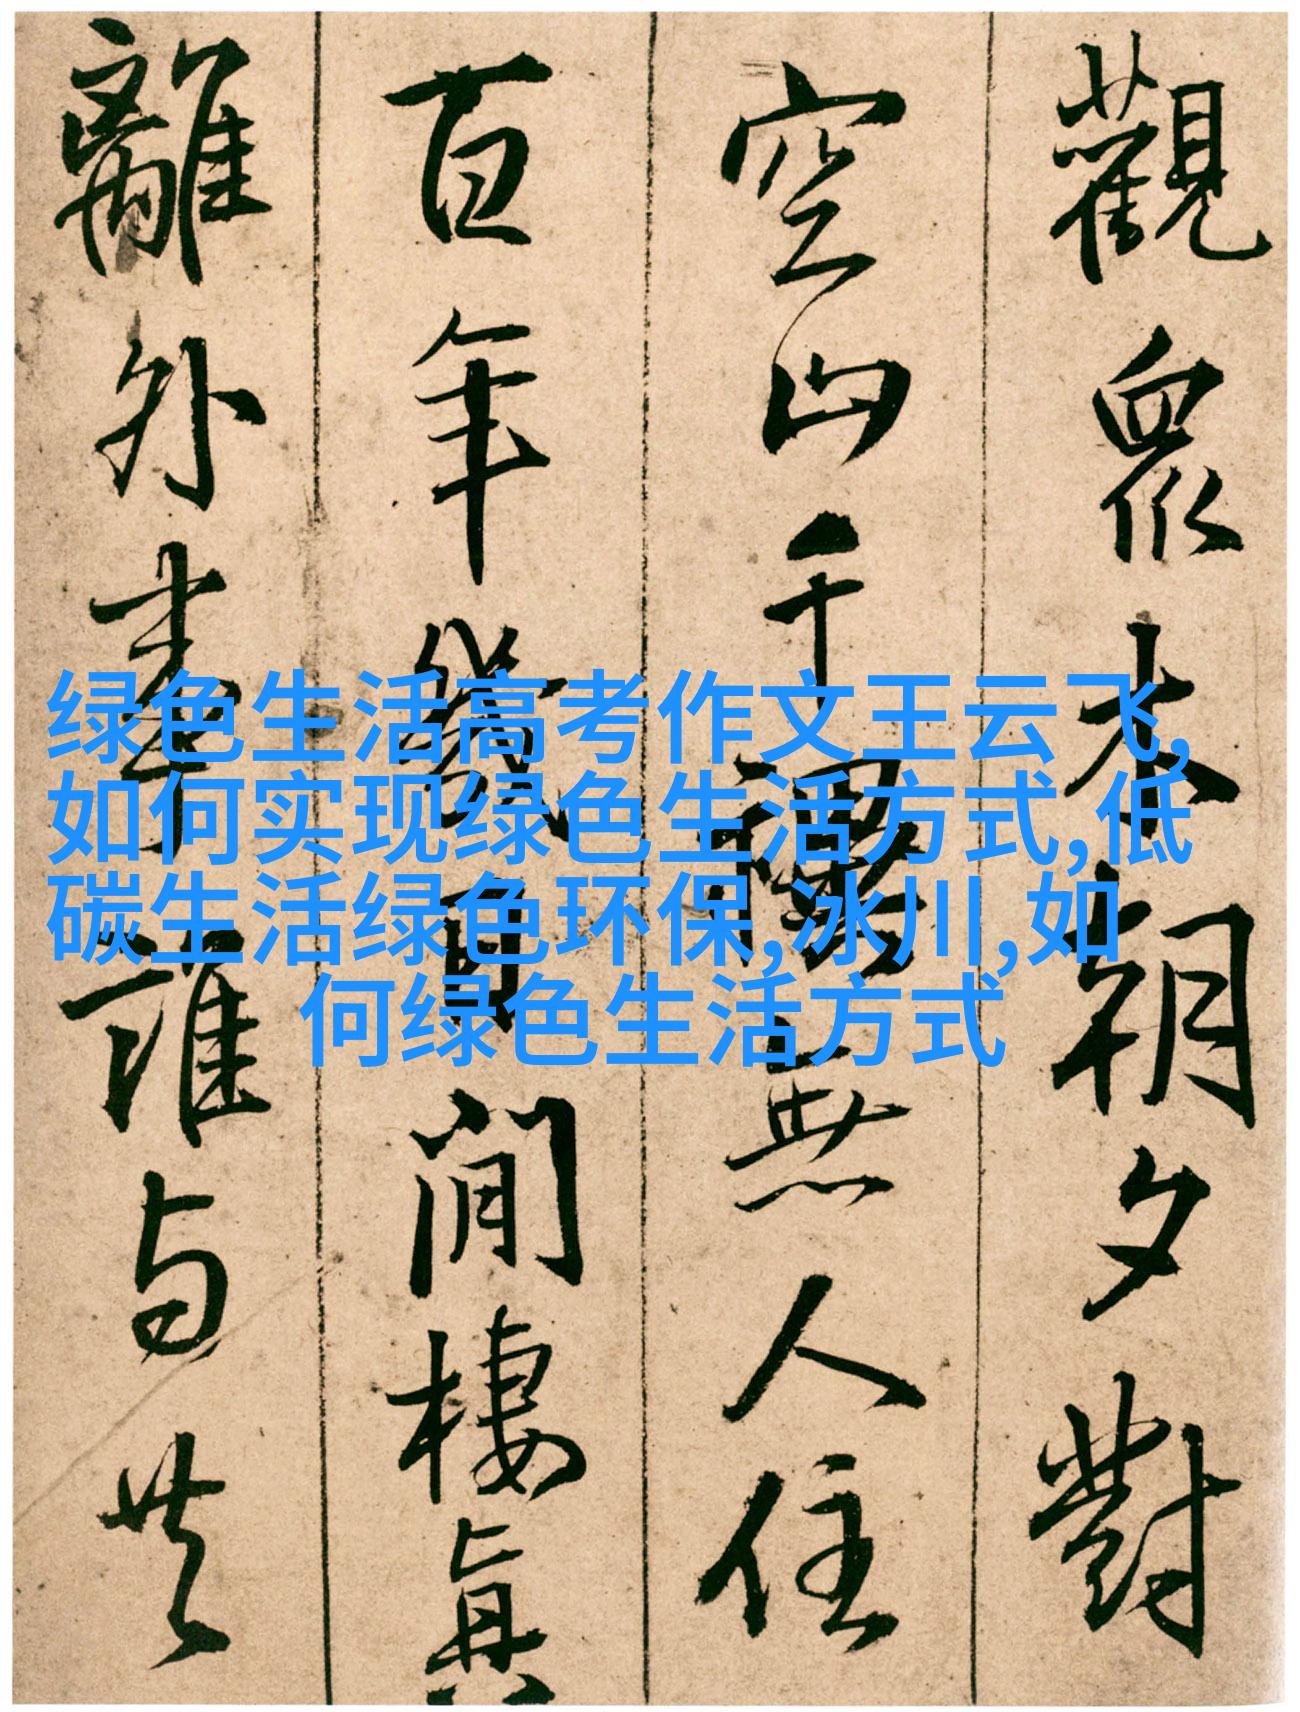 觀眾木朝夕對
空山千無人住
百年幾閒棲真
離外事誰与共
绿色生活高考作文王云飞,
如何实现绿色生活方式,低
碳生活绿色环保,冰川,如
何绿色生活方式